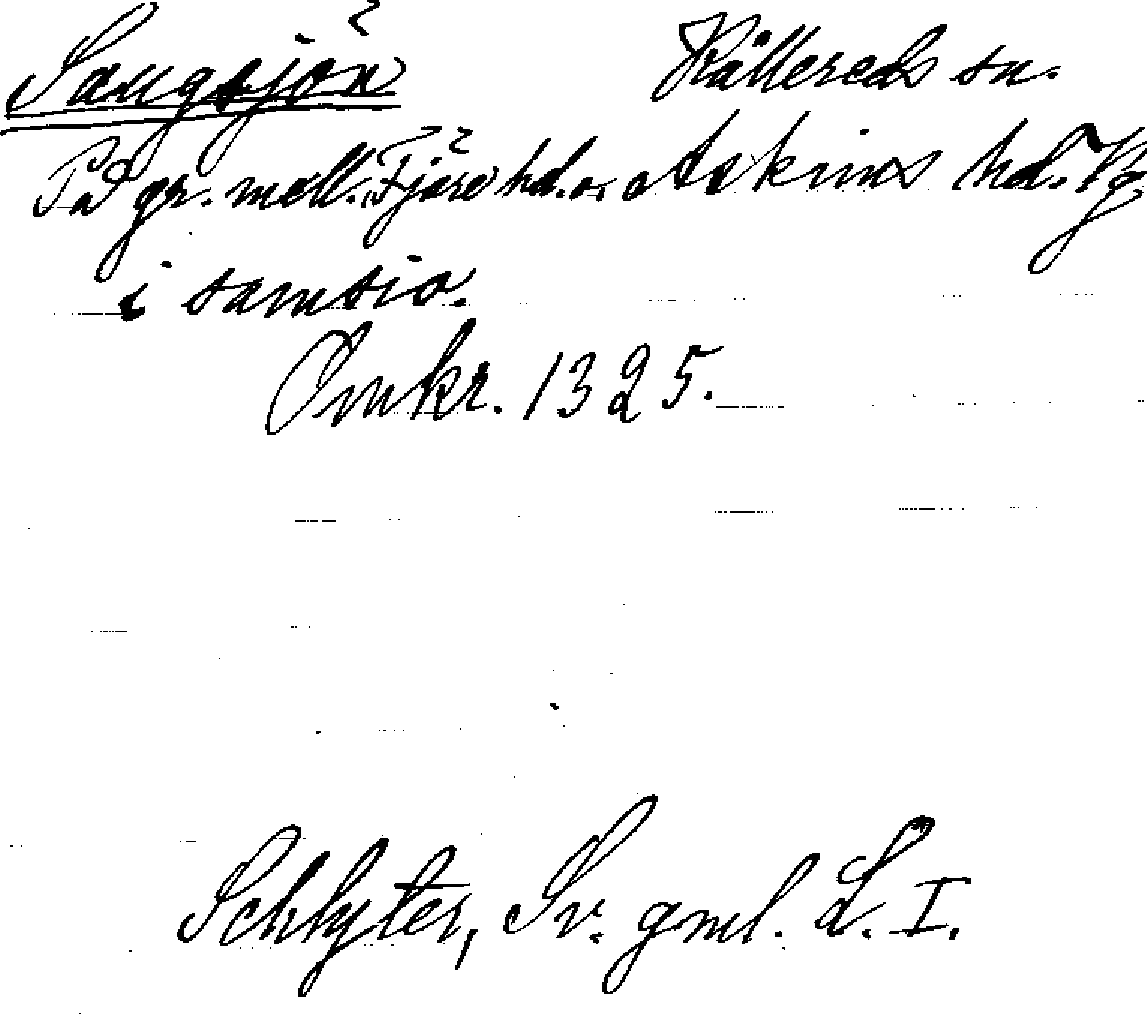 Sangsjön Kållereds sn.
På gr. mell. Fjäre hd. o. Askims hd. Vg.
i samsio.
Omkr. 1325.
Schlyter, Sv. gml. L. I.